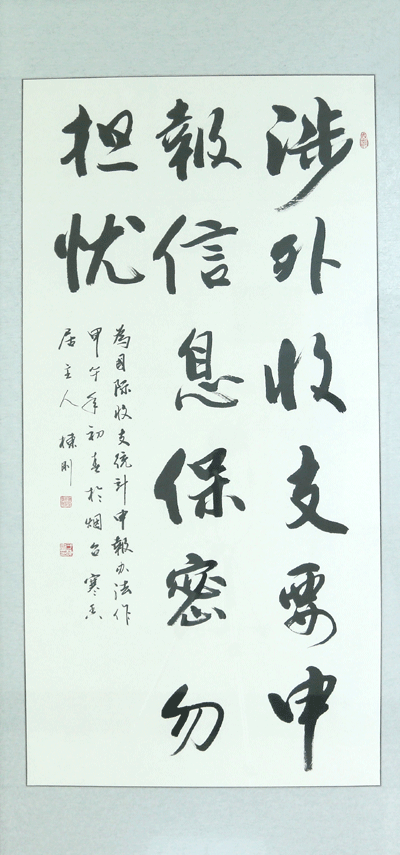 涉外收支要申
報信息保密勿
担忧
為国际收支统计申報办法作
甲午年初春於烟台寒香
居主人 栋刚